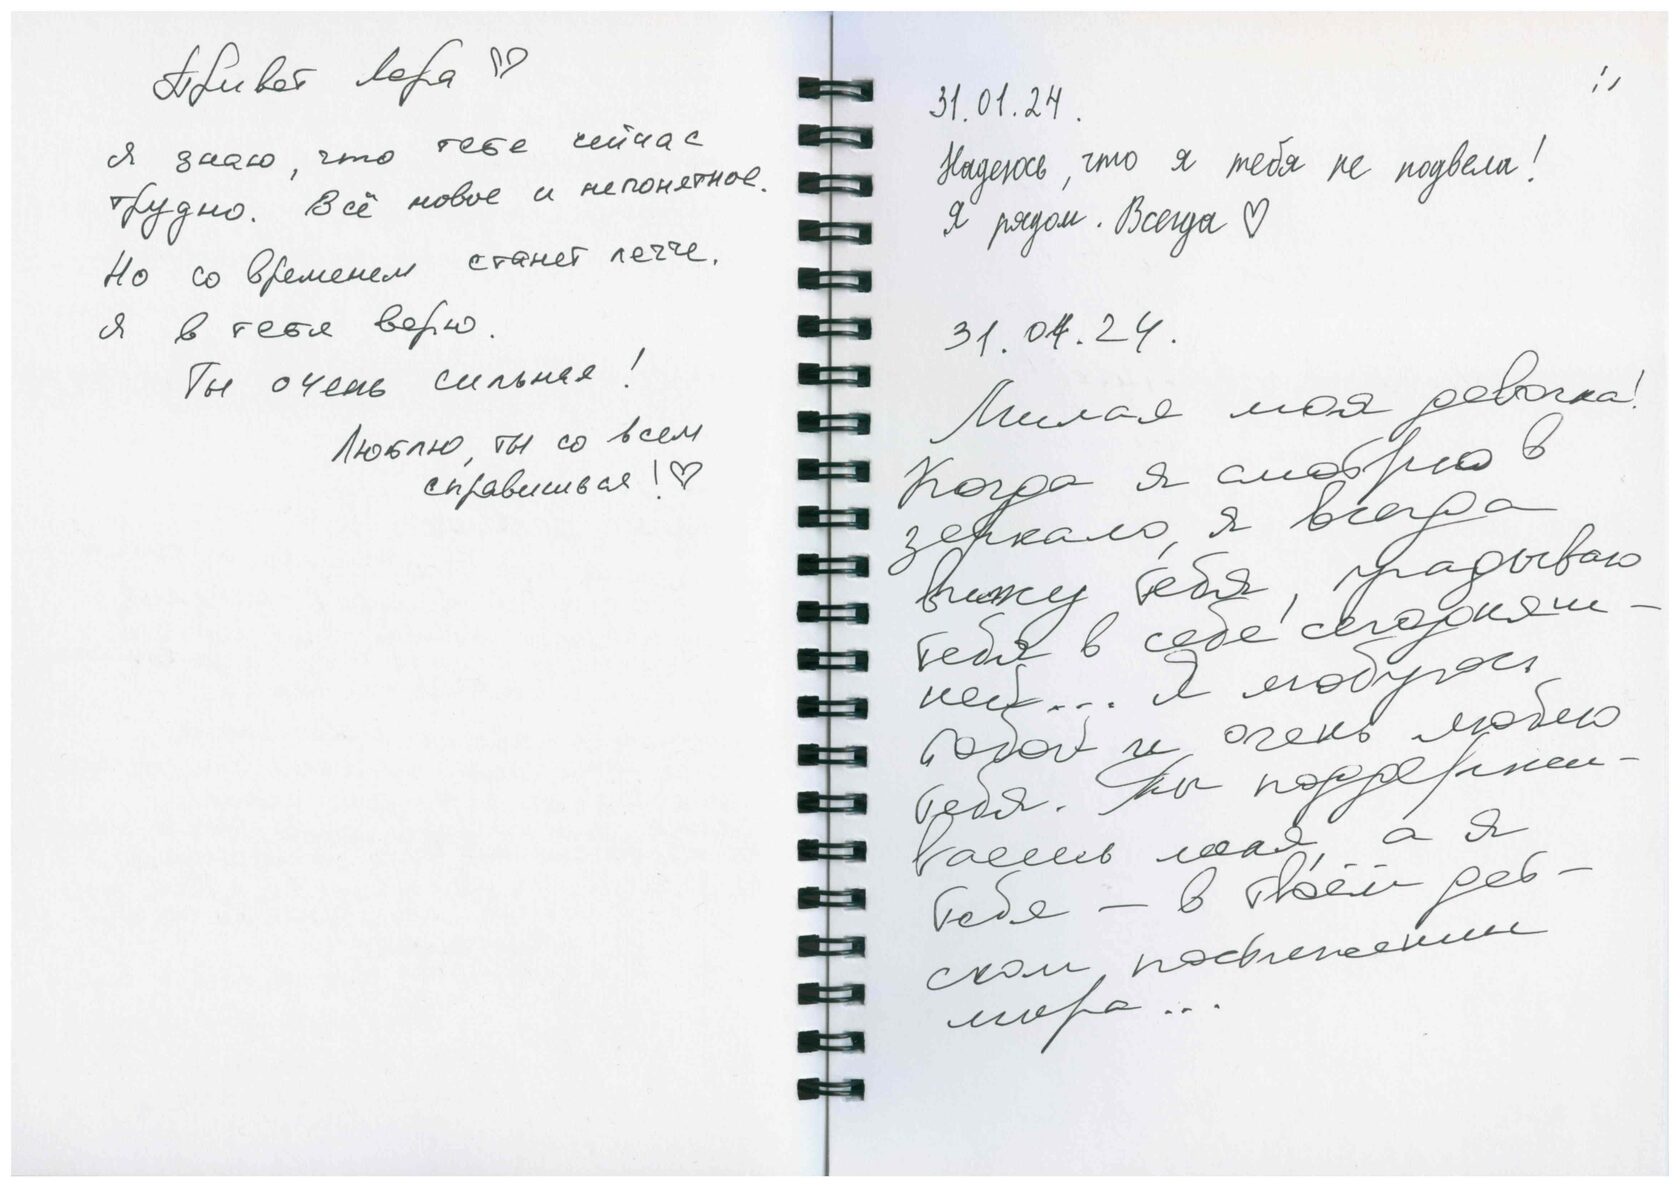 Привет Лера ♡
Я знаю, что тебе сейчас
трудно. Всё новое и непонятное.
Но со временем станет легче.
Я в тебя верю.
Ты очень сильная!
Люблю, ты со всем
справишься! ♡
31.01.24.
Надеюсь, что я тебя не подвела!
Я рядом. Всегда ♡
31.01.24.
Милая моя девочка!
Когда я смотрю в
зеркало, я всегда
вижу тебя, угадываю
тебя в себе сегодняш-
ней... Я любуюсь
тобой и очень люблю
тебя. Ты поддержи-
ваешь меня, а я
тебя – в твоём дет-
ском постижении
мира...